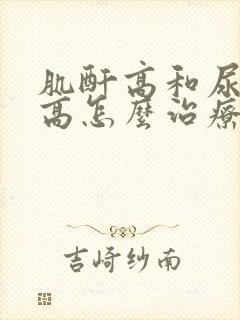 肌酐高和尿
高怎麼治療
吉崎纱南